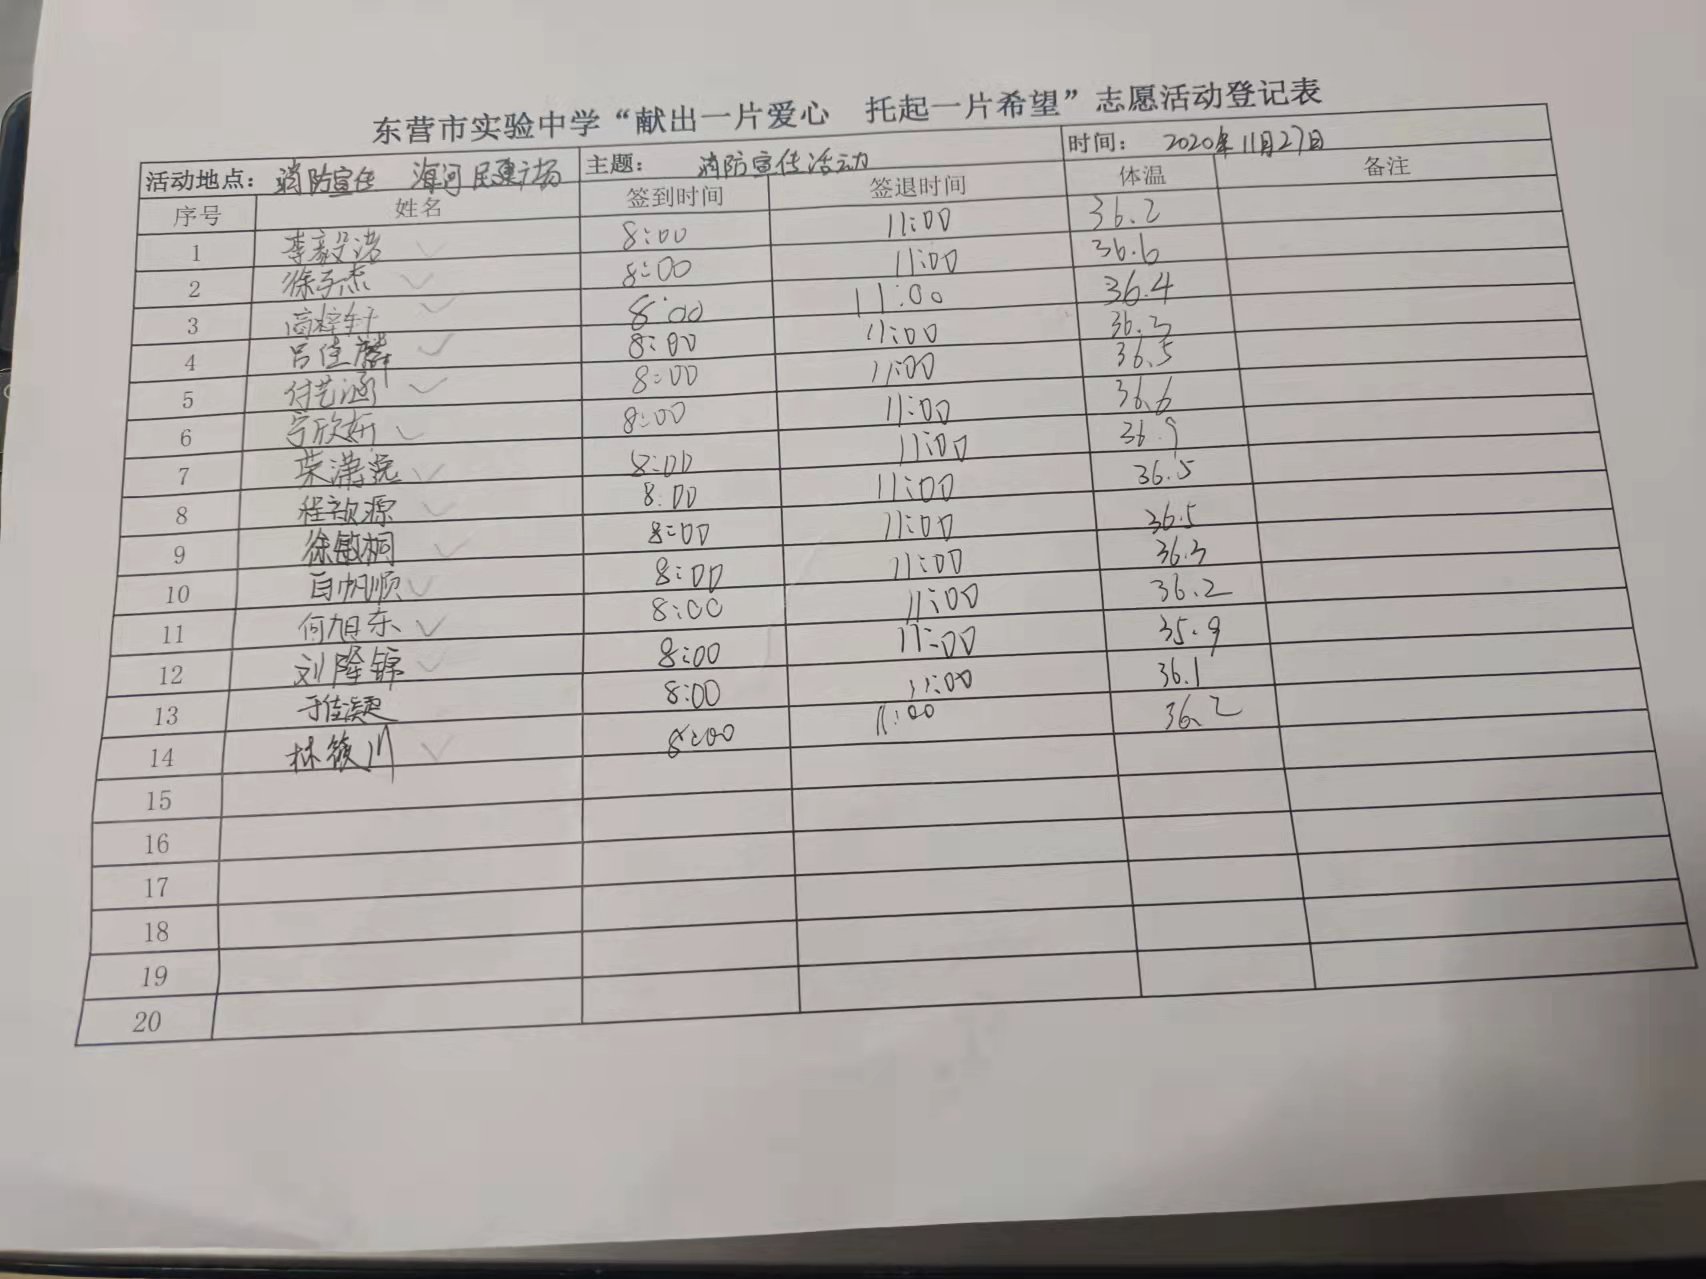 东营市实验中学“献出一片爱心 托起一片希望”志愿活动登记表
活动地点： 消防宣传 海河 广场 主题： 消防宣传活动 时间： 2020年11月27日
序号 姓名 签到时间 签退时间 体温 备注
1 李毅浩 8:00 11:00 36.2
2 徐子杰 8:00 11:00 36.6
3 高梓轩 8:00 11:00 36.4
4 吕佳麟 8:00 11:00 36.3
5 付艺涵 8:00 11:00 36.5
6 欣妍 8:00 11:00 36.6
7 荣潇逸 8:00 11:00 36.9
8 程源 8:00 11:00 36.5
9 徐敏桐 8:00 11:00 36.5
10 白帆顺 8:00 11:00 36.3
11 何旭东 8:00 11:00 36.2
12 刘隆锦 8:00 11:00 35.9
13 于佳凝 8:00 11:00 36.1
14 林川 8:00 11:00 36.2
15
16
17
18
19
20